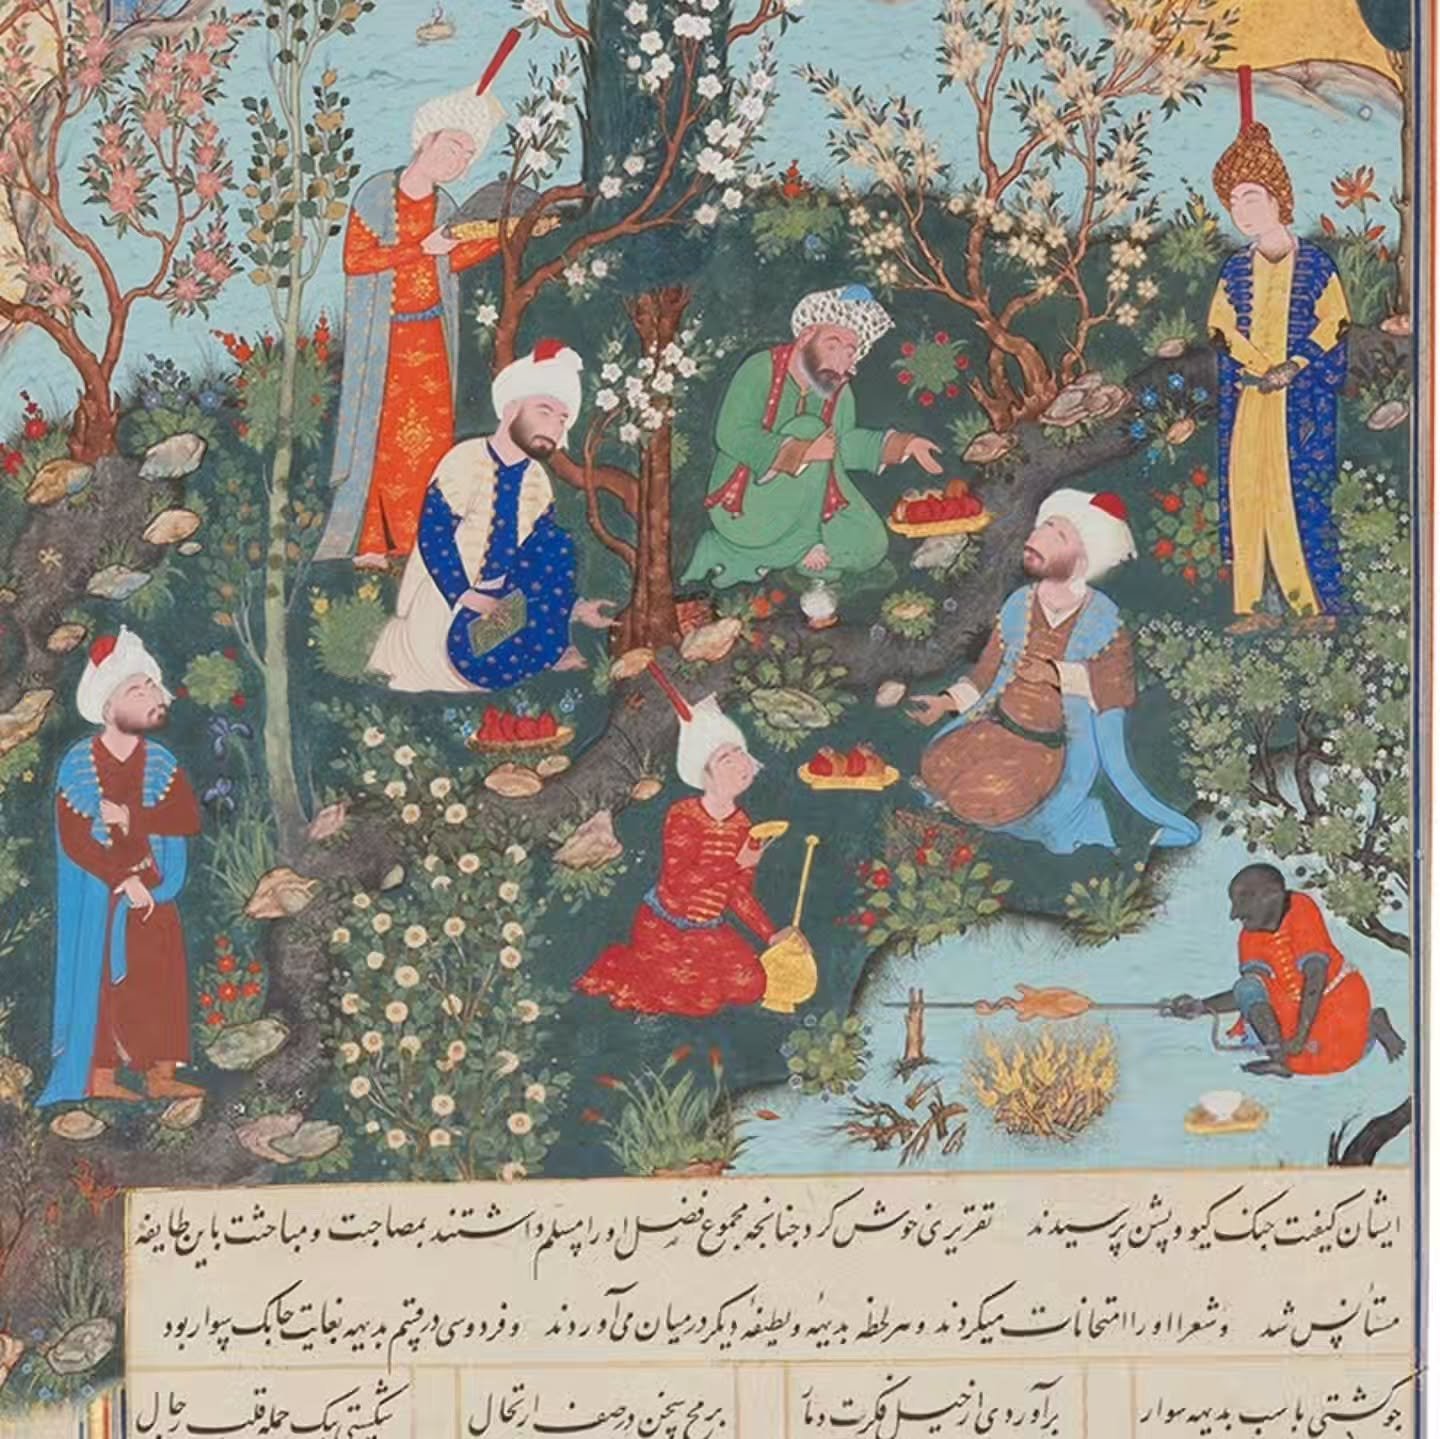 ایشان کیفیت جنک کیو و پشن پرسیدند تقریری خوش کرد جنانجه مجموع فضل او را مسلم داشتند بمصاحبت و مباحثت باین طایفه
مستأنس شد و شعرا او را امتحانات میکردند و هر لحظه بدیهه و لطیفه دیکر در میان می‌آوردند و فردوسی در قسم بدیهه بغایت جابک سوار بود
جو کشتی با سب بدیهه سوار برآوردی از خیل فکرت دمار برمح سخن در صف ارتحال شکستی بیک حمله قلب رجال